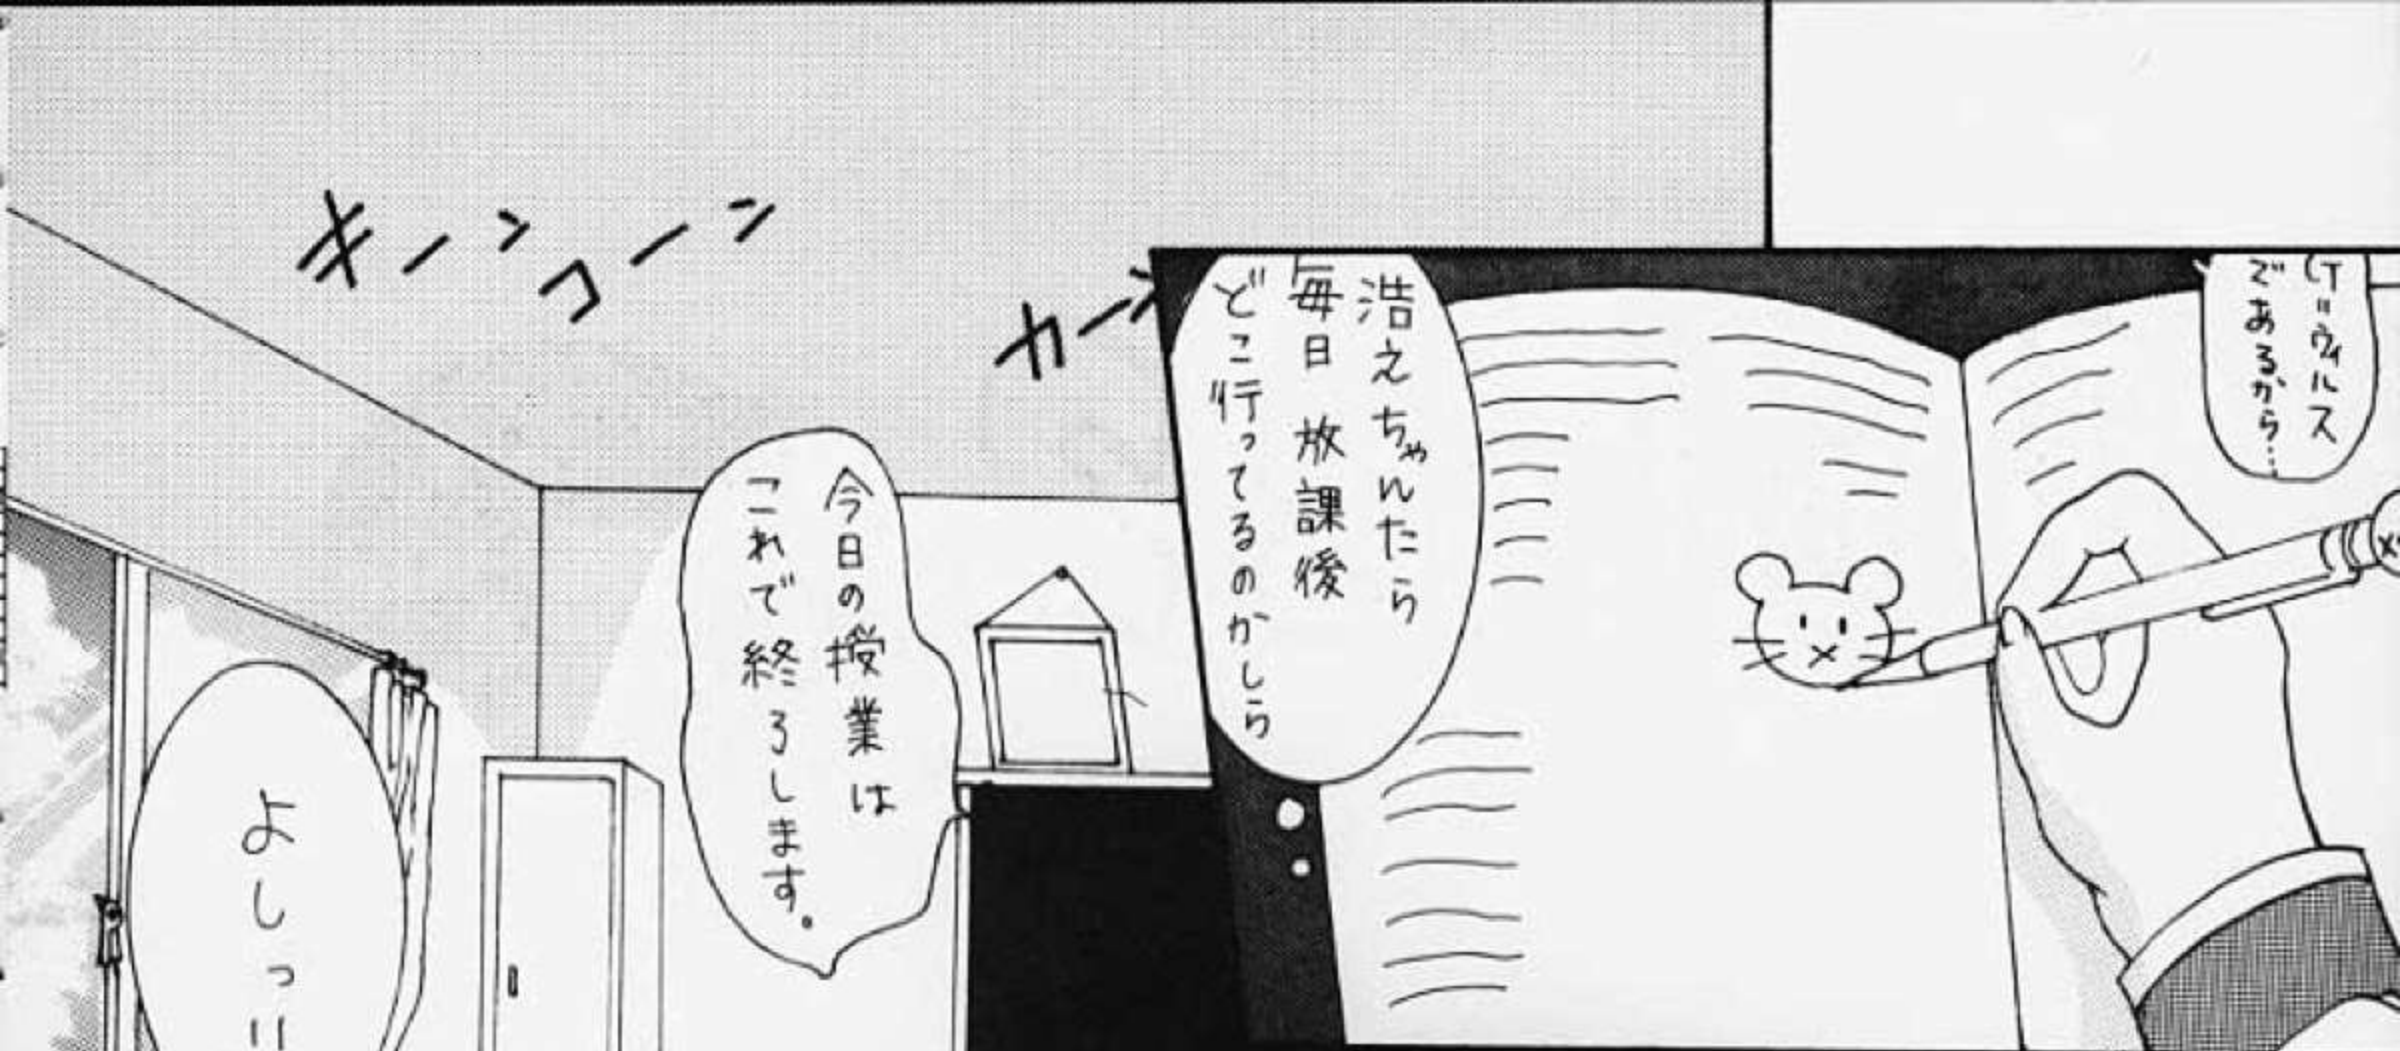 ウィルス
であるから…
浩えちゃんたら
毎日放課後
どこ行ってるのかしら
キーンコーン
カー
今日の授業は
これで終ろします。
よしっ!!